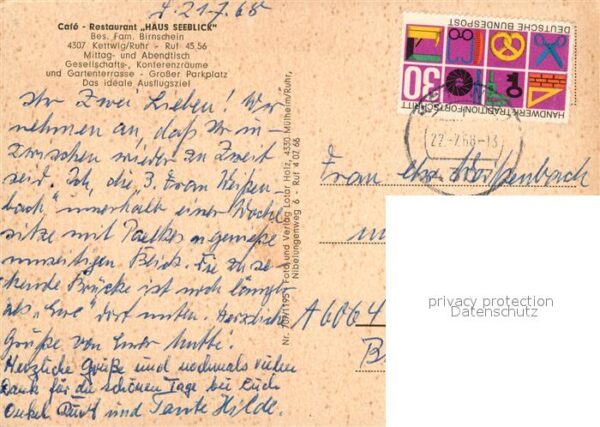 d. 21.7.68
Café - Restaurant „HAUS SEEBLICK"
Bes. Fam. Birnschein
4307 Kettwig/Ruhr - Ruf 45 56
Mittag- und Abendtisch
Gesellschafts-, Konferenzräume
und Gartenterrasse - Großer Parkplatz
Das ideale Ausflugsziel
Ihr Zwei Lieben! Wir
nehmen an, daß Ihr in-
zwischen wieder zu Zweit
seid. Ich, die „3. Frau Weißen-
bach" innerhalb einer Woche
sitze mit
umseitigen Blick. Die zu se-
hende Brücke ist noch länger
als „Eure" dort unten. Herzliche
Grüße von Eurer Mutti.
Herzliche Grüße und nochmals vielen
Dank für die schönen Tage bei Euch
Onkel Kurt und Tante Hilde.
Nr. 707/1195 Foto und Verlag Lotar Holz, 4330 Mülheim/Ruhr,
Nibelungenweg 6 - Ruf 4 07 66
DEUTSCHE BUNDESPOST
30
HANDWERK·TRADITION·FORTSCHRITT
22.-7.68-13
Frau
A6064
privacy protection
Datenschutz